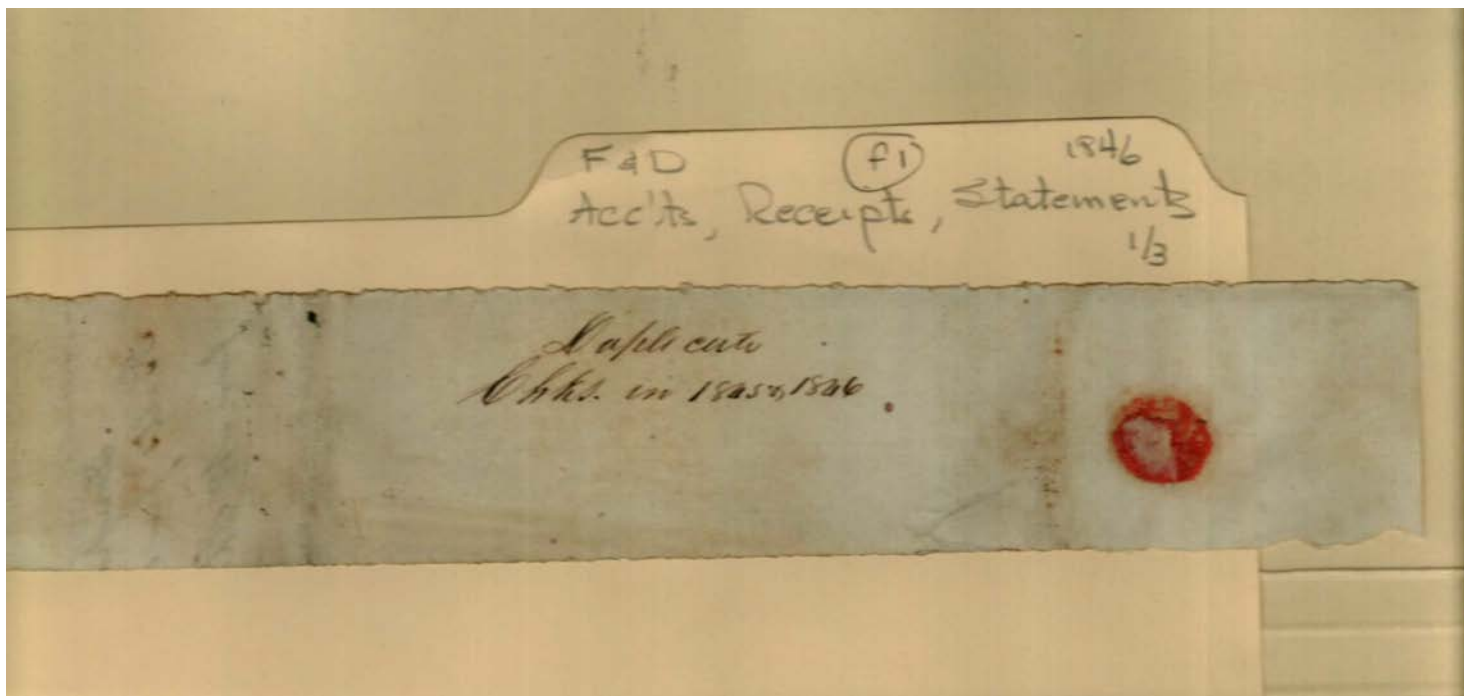 F & D f1 1846
Acc'ts, Receipts, Statements
1/3
Duplicate
Chks. in 1845 & 1846